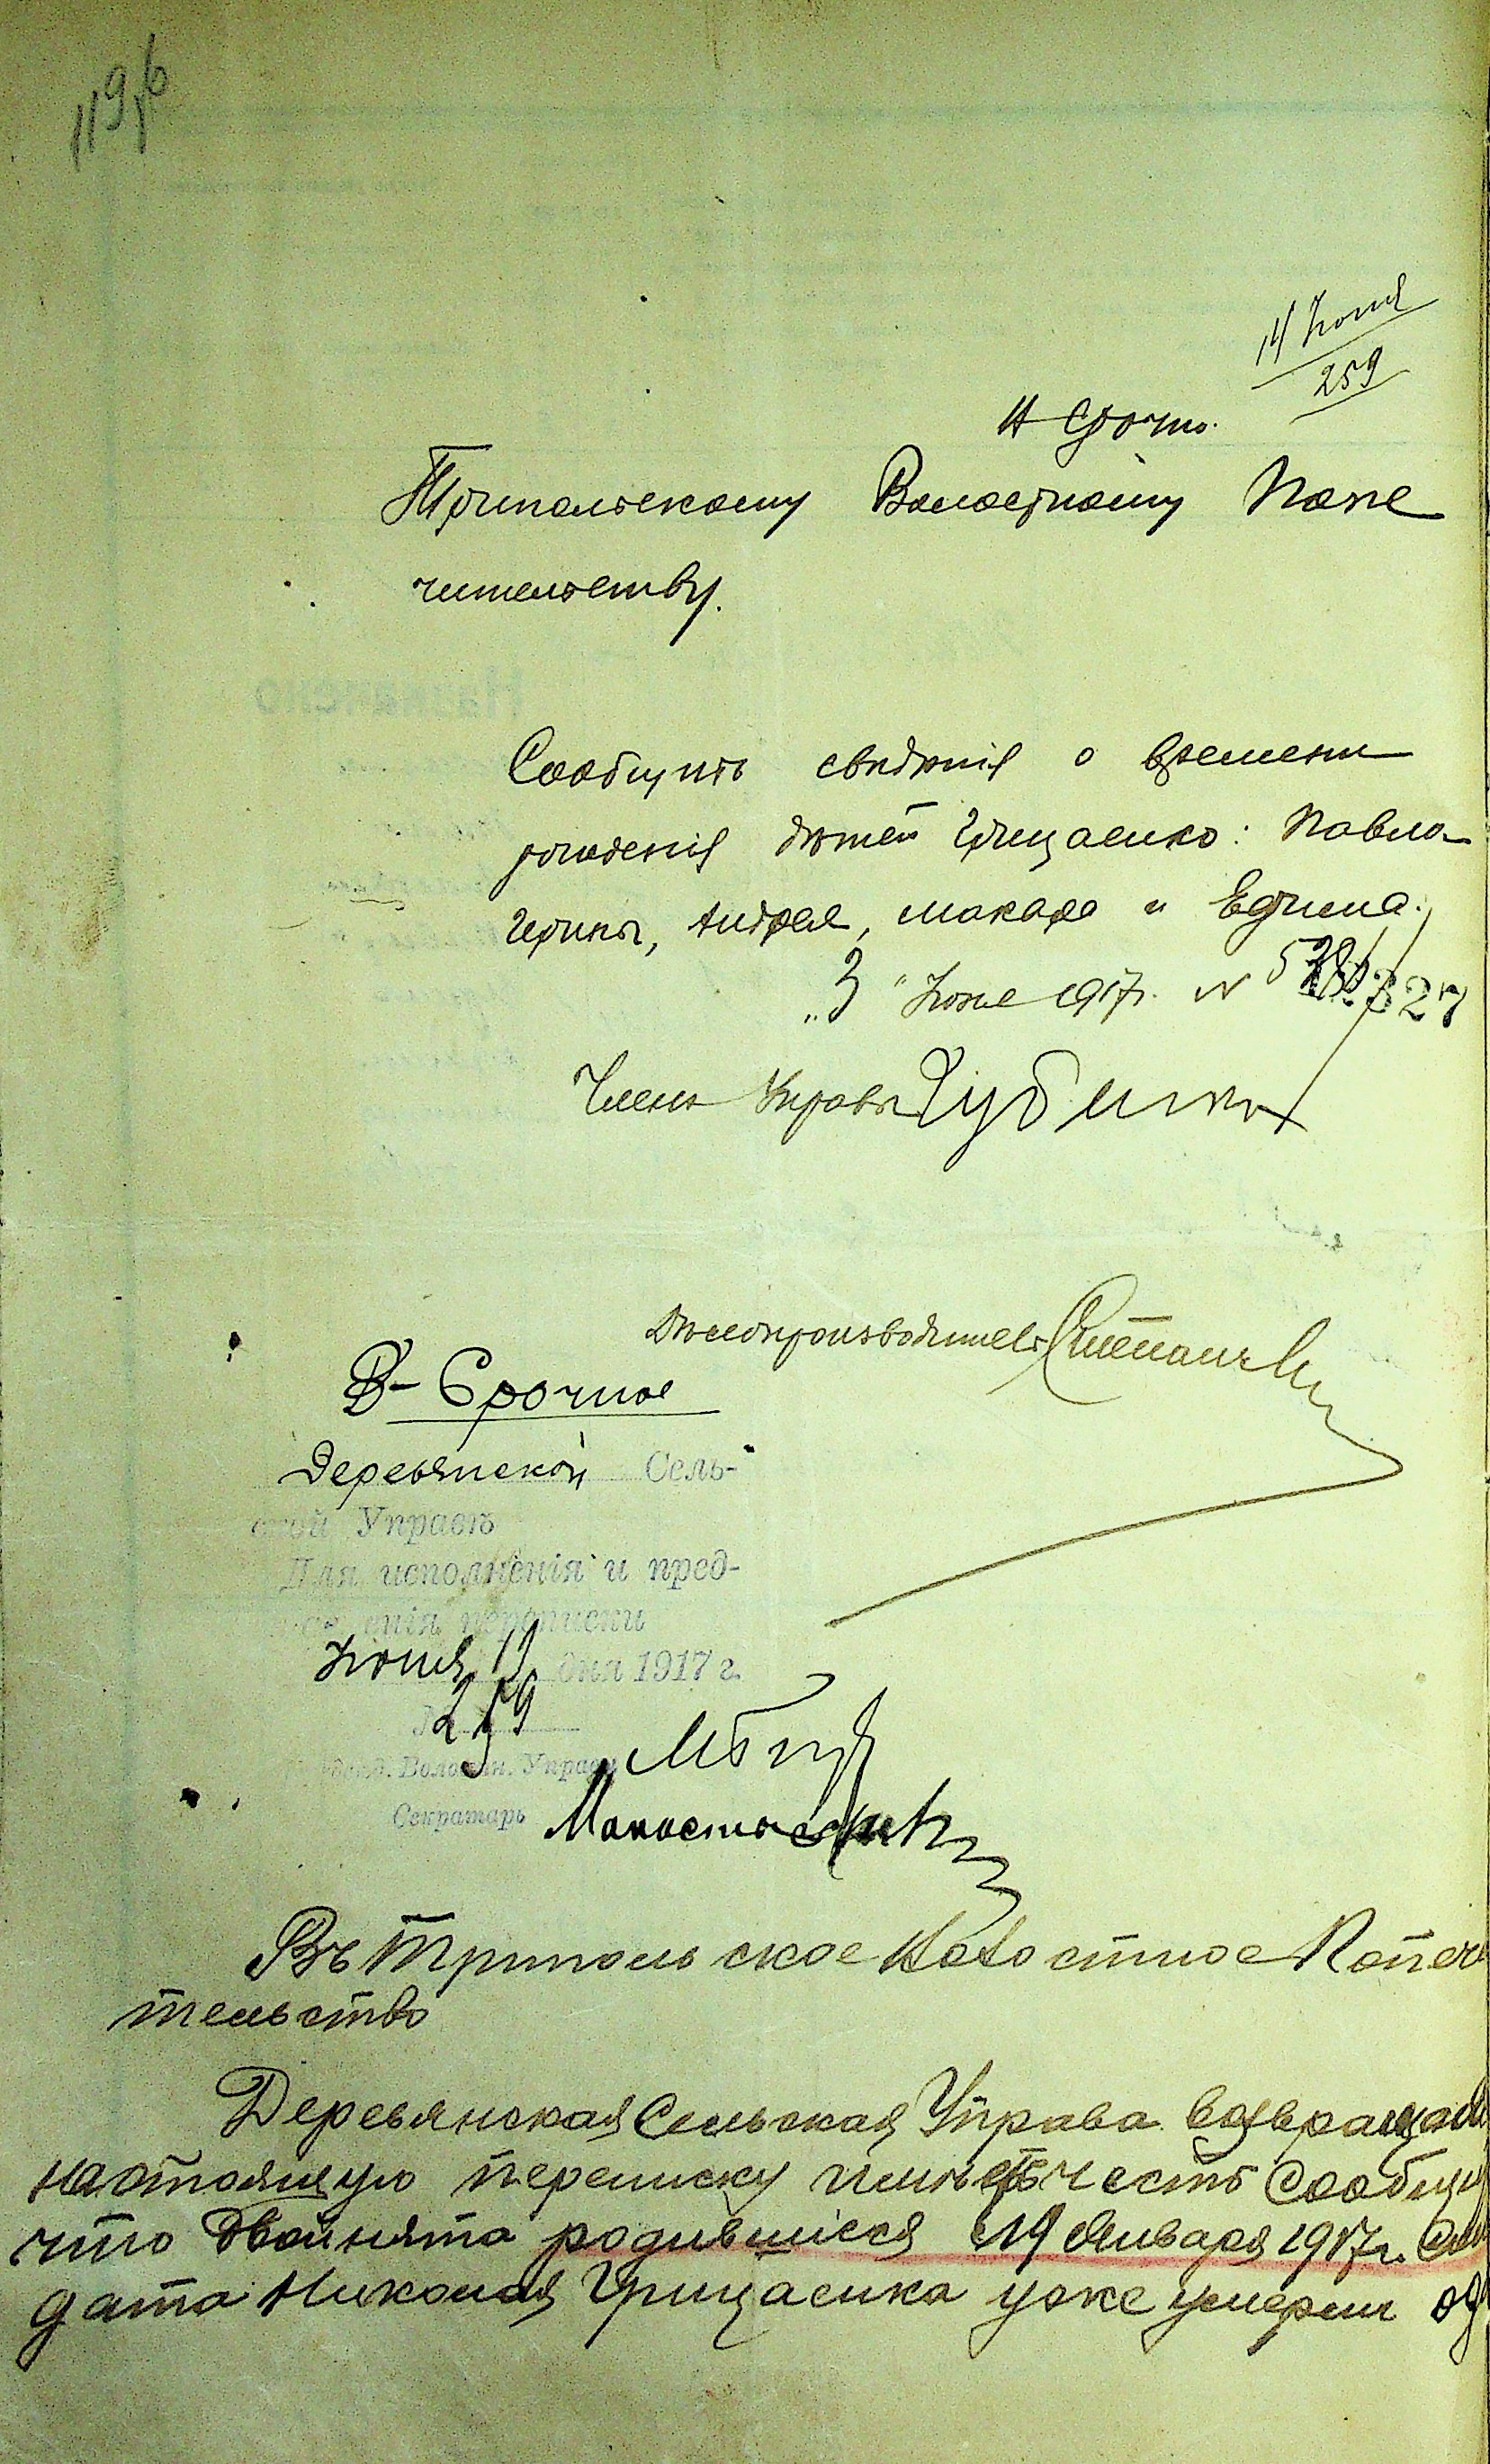 119б
14 Июня
259
Срочно.
Трипольскому Волостному Попе
чительству.
Сообщить свѣдѣнія о времени
рожденія дѣтей Грицаенко: Павла
Ирины, Андрея, Макара и Ефима.
"3" Июня 1917г. N 327
Членъ Управы
Дѣлопроизводитель
В- Срочное
Деревянской Сель-
ской Управѣ
Для исполненія и пред-
ставленія переписки
Июня 14 дня 1917 г.
№ 259
Предсѣд. Волостн. Управы
Секретарь
Въ Трипольское Волостное Попечи
тельство
Деревянская Сельская Управа возвращая
настоящую переписку имѣетъ честь сообщи
что двойнята родившіеся 19 Января 1917г. Сол
дата Николая Грицаенка уже умерли